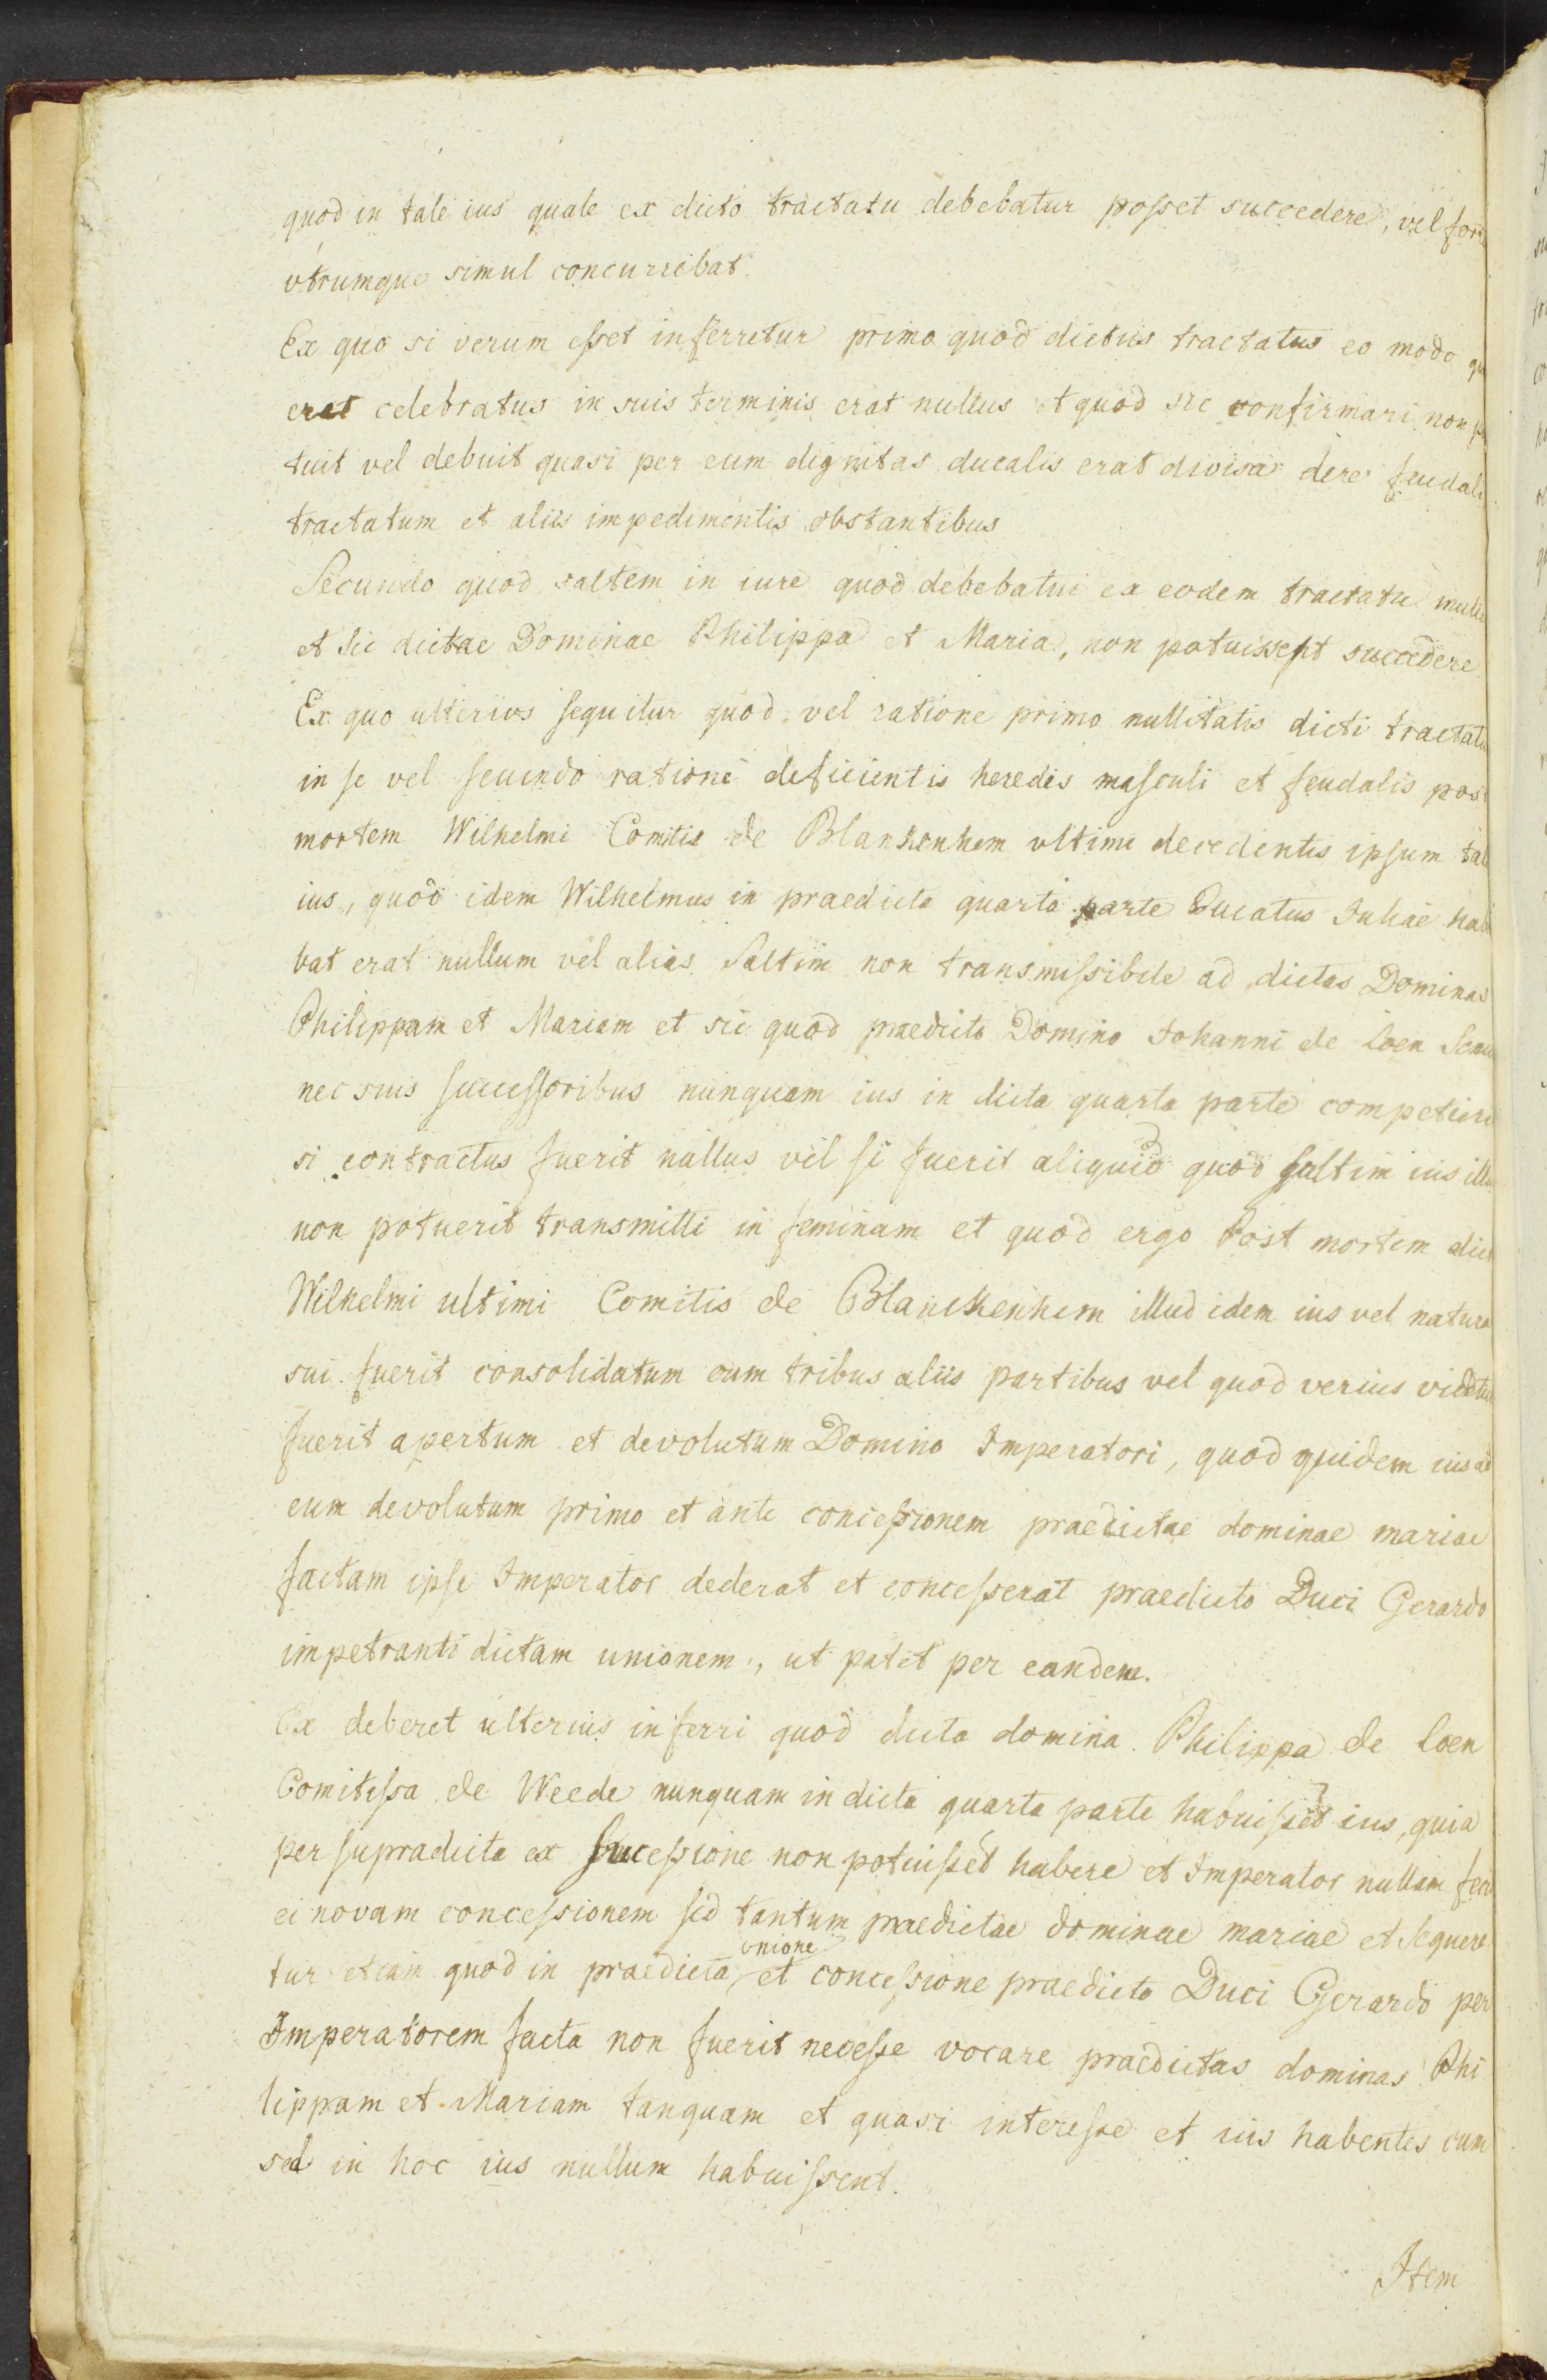 quod in tale ius quale ex dicto tractatu debebatur posset succedere, vel for
utrumque simul concurrebat.
Ex quo si verum esset inferretur primo quod dictus tractatus eo modo qu
erat celebratus in suis terminis erat nullus et quod sic confirmari non p
tuit vel debuit quasi per eum dignitas ducalis erat divisa dere feudali
tractatum et aliis impedimentis obstantibus
Secundo quod saltem in iure quod debebatur ex eodem tractatu mulie
et sic dictae Dominae Philippa et Maria, non potuissent succedere
Ex quo ulterius sequitur quod vel ratione primo nullitatis dicti tractatu
in se vel secundo ratione deficientis heredis masculi et feudalis post
mortem Wilhelmi Comitis de Blankenhem ultimi decedentis ipsum tal
ius, quod idem Wilhelmus in praedicta quarta parte Ducatus Juliae hab
bat erat nullum vel alias saltim non transmissibile ad dictas Dominas
Philippam et Mariam et sic quod praedicto Domino Johanni de Loen Seni
nec suis successoribus nunquam ius in dicta quarta parte competiere
si contractus fuerit nullus vel si fuerit aliquid quod saltim ius illu
non potuerit transmitti in feminam et quod ergo Post mortem dict
Wilhelmi ultimi Comitis de Blanckenhem illud idem ius vel natura
sui fuerit consolidatum cum tribus aliis partibus vel quod verius videtur
fuerit apertum et devolutum Domino Imperatori, quod quidem ius ad
eum devolutum primo et ante concessionem praedictae dominae mariae
factam ipse Imperator dederat et concesserat praedicto Duci Gerardo
impetranti dictam unionem, ut patet per eandem.
Ex deberet ulterius inferri quod dicta domina Philippa de Loen
Comitissa de Weede nunquam in dicta quarta parte habuisset ius, quia
per supradicta ex successione non potuisset habere et Imperator nullam feci
ei novam concessionem sed tantum praedictae dominae mariae et sequere
tur etiam quod in praedicta unione et concessione praedicto Duci Gerardo per
Imperatorem facta non fuerit necesse vocare praedictas dominas Phi
lippam et Mariam tanquam et quasi interesse et ius habentes cum
sed in hoc ius nullum habuissent.
Item